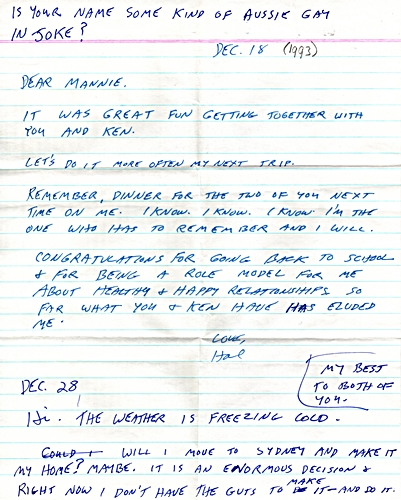 IS YOUR NAME SOME KIND OF AUSSIE GAY
IN JOKE?
DEC. 18 (1993)
DEAR MANNIE.
IT WAS GREAT FUN GETTING TOGETHER WITH
YOU AND KEN.
LET'S DO IT MORE OFTEN MY NEXT TRIP.
REMEMBER, DINNER FOR THE TWO OF YOU NEXT
TIME ON ME. I KNOW. I KNOW. I KNOW I'M THE
ONE WHO HAS TO REMEMBER AND I WILL.
CONGRATULATIONS FOR GOING BACK TO SCHOOL
& FOR BEING A ROLE MODEL FOR ME
ABOUT HEALTHY & HAPPY RELATIONSHIPS SO
FAR WHAT YOU & KEN HAVE HAS ELUDED
ME.
LOVE,
Hal
MY BEST
TO BOTH OF
YOU.
DEC. 28
Hi. THE WEATHER IS FREEZING COLD.
COULD I WILL I MOVE TO SYDNEY AND MAKE IT
MY HOME? MAYBE. IT IS AN ENORMOUS DECISION &
RIGHT NOW I DON'T HAVE THE GUTS TO MAKE IT—AND DO IT.